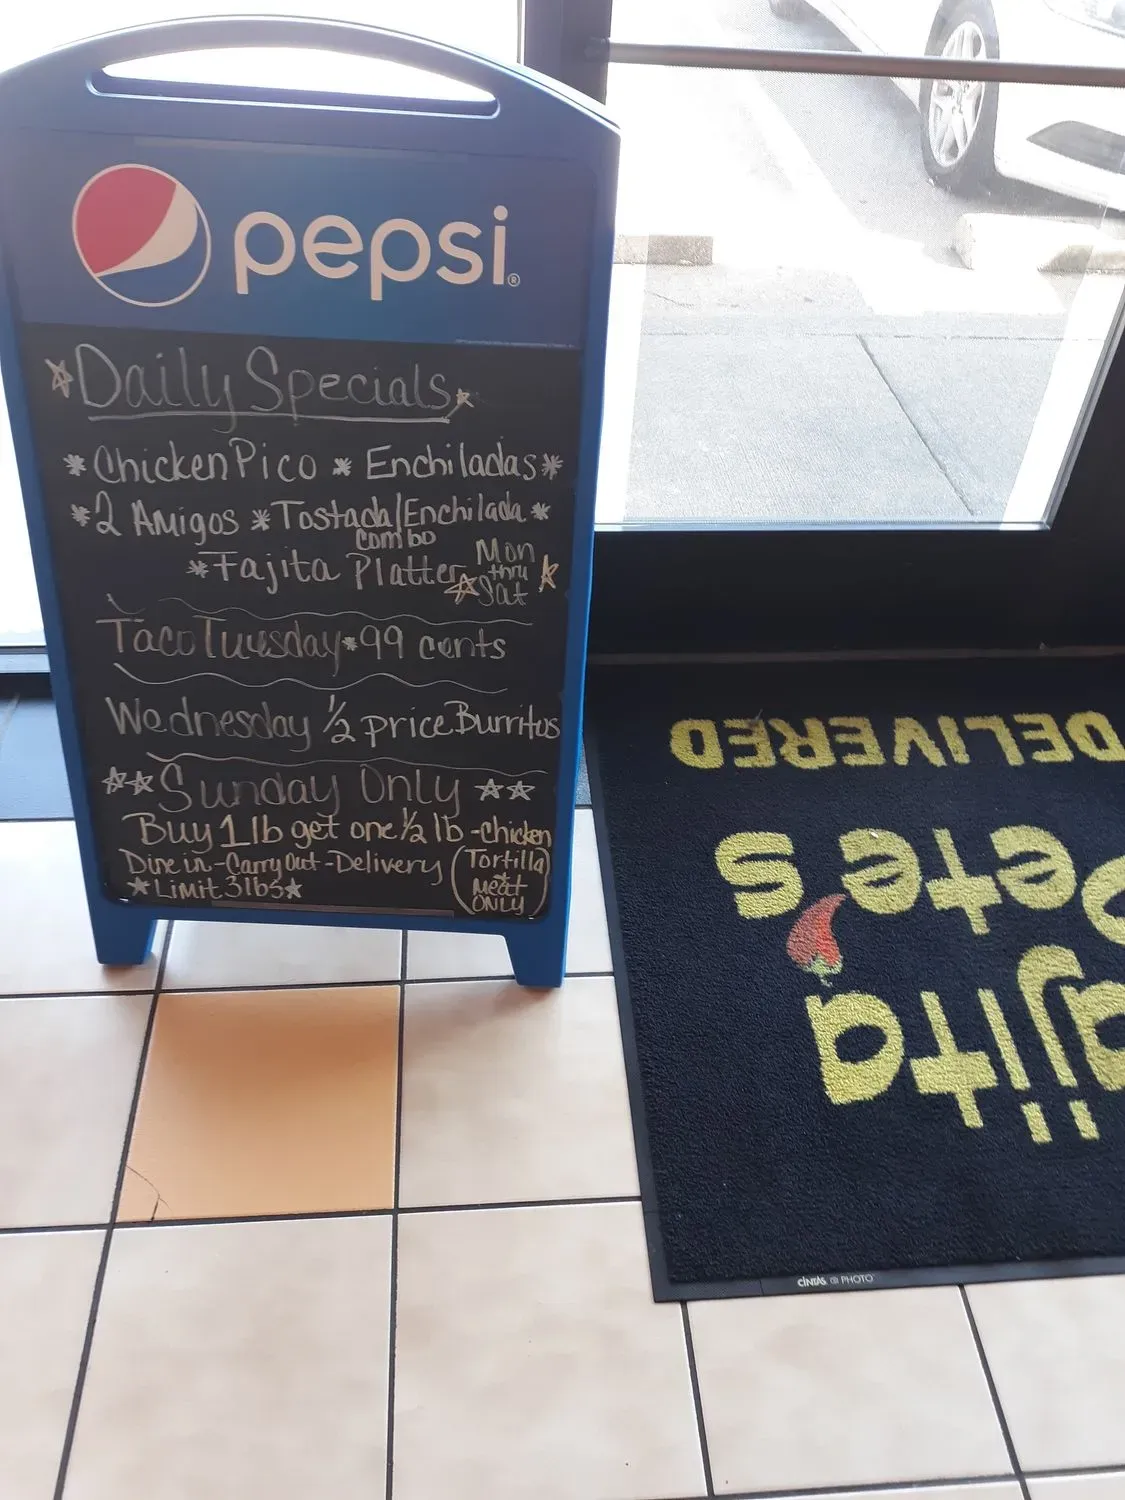 pepsi®
Daily Specials
*Chicken Pico * Enchiladas*
*2 Amigos *Tostada/Enchilada*
combo
*Fajita Platter Mon
thru
Sat
Taco Tuesday*99 cents
Wednesday 1/2 price Burritos
Sunday Only
Buy 1 lb get one 1/2 lb -chicken
Dine in-Carry Out-Delivery (Tortilla
*Limit 3lbs* meat
ONLY)
DELIVERED
Pete's
ajita
CINTAS PHOTO